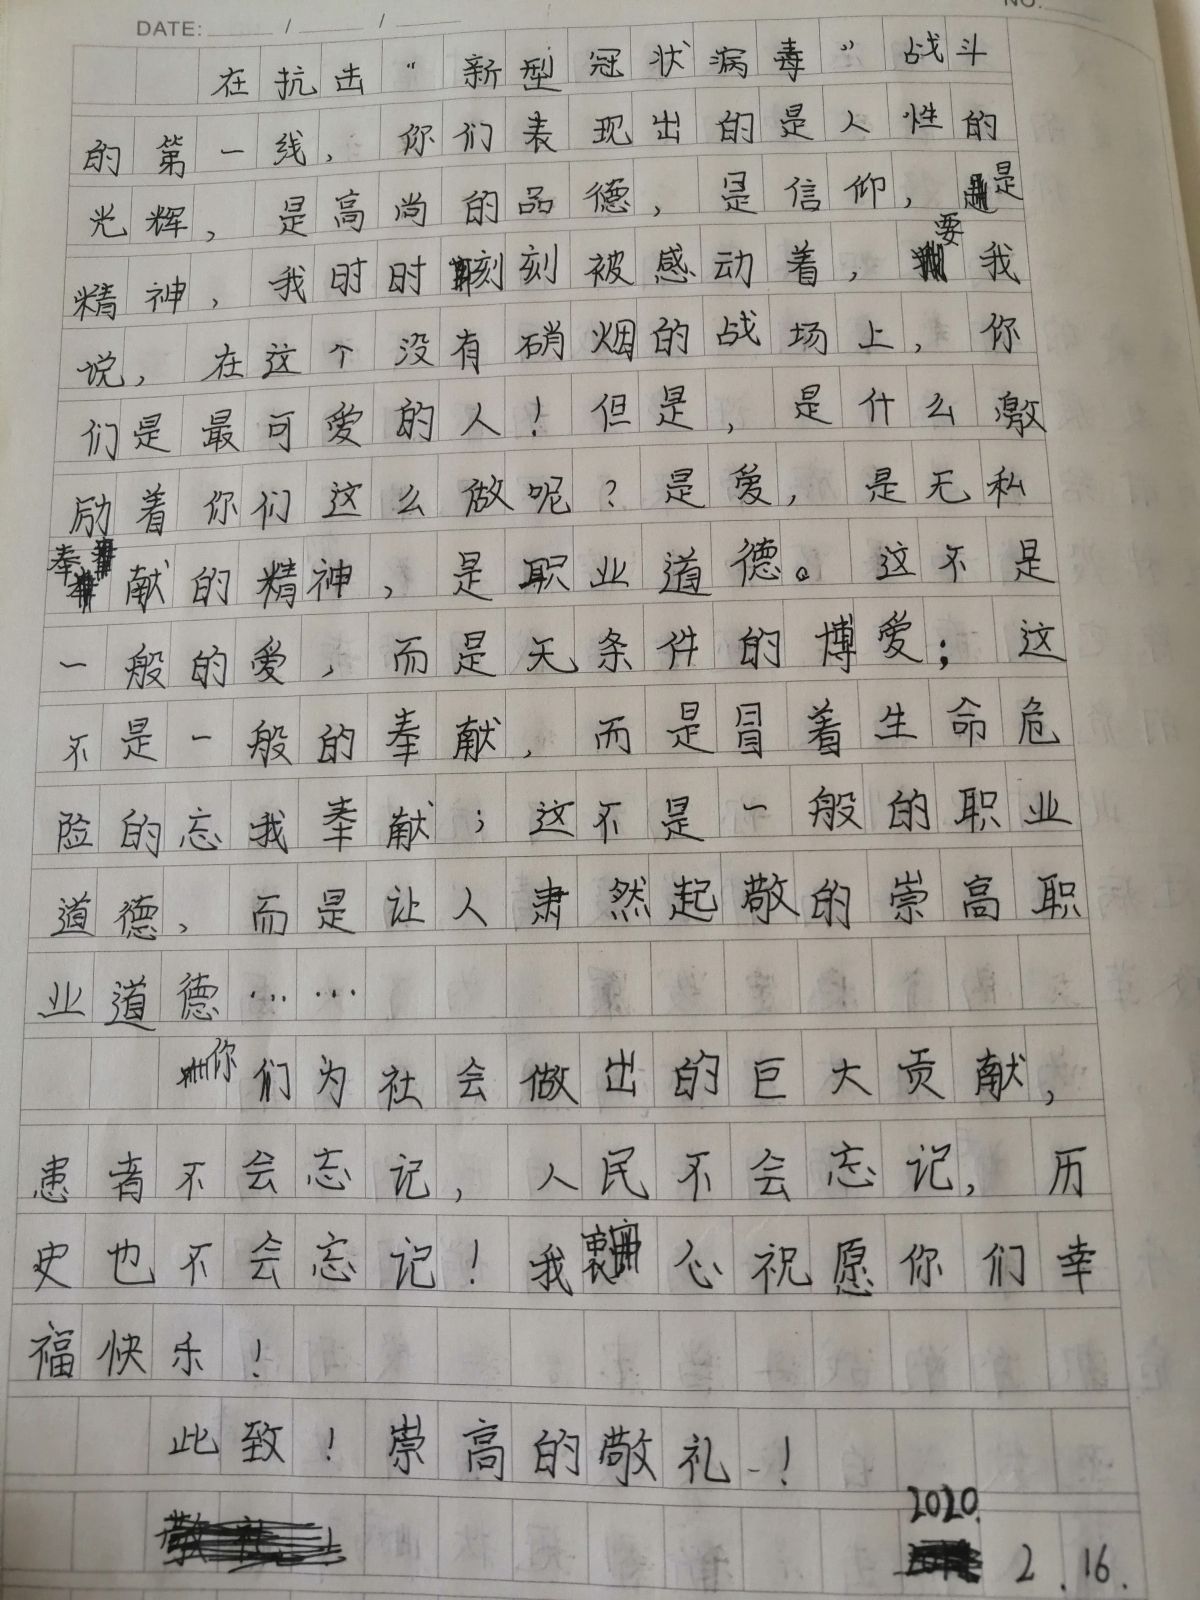 NO.
DATE: / /
在抗击“新型冠状病毒”战斗
的第一线，你们表现出的是人性的
光辉，是高尚的品德，是信仰，是
精神，我时时刻刻被感动着，要我
说，在这个没有硝烟的战场上，你
们是最可爱的人！但是，是什么激
励着你们这么做呢？是爱，是无私
奉献的精神，是职业道德。这不是
一般的爱，而是无条件的博爱；这
不是一般的奉献，而是冒着生命危
险的忘我奉献；这不是一般的职业
道德，而是让人肃然起敬的崇高职
业道德……
你们为社会做出的巨大贡献，
患者不会忘记，人民不会忘记，历
史也不会忘记！我衷心祝愿你们幸
福快乐！
此致！崇高的敬礼！
2020.
2.16.